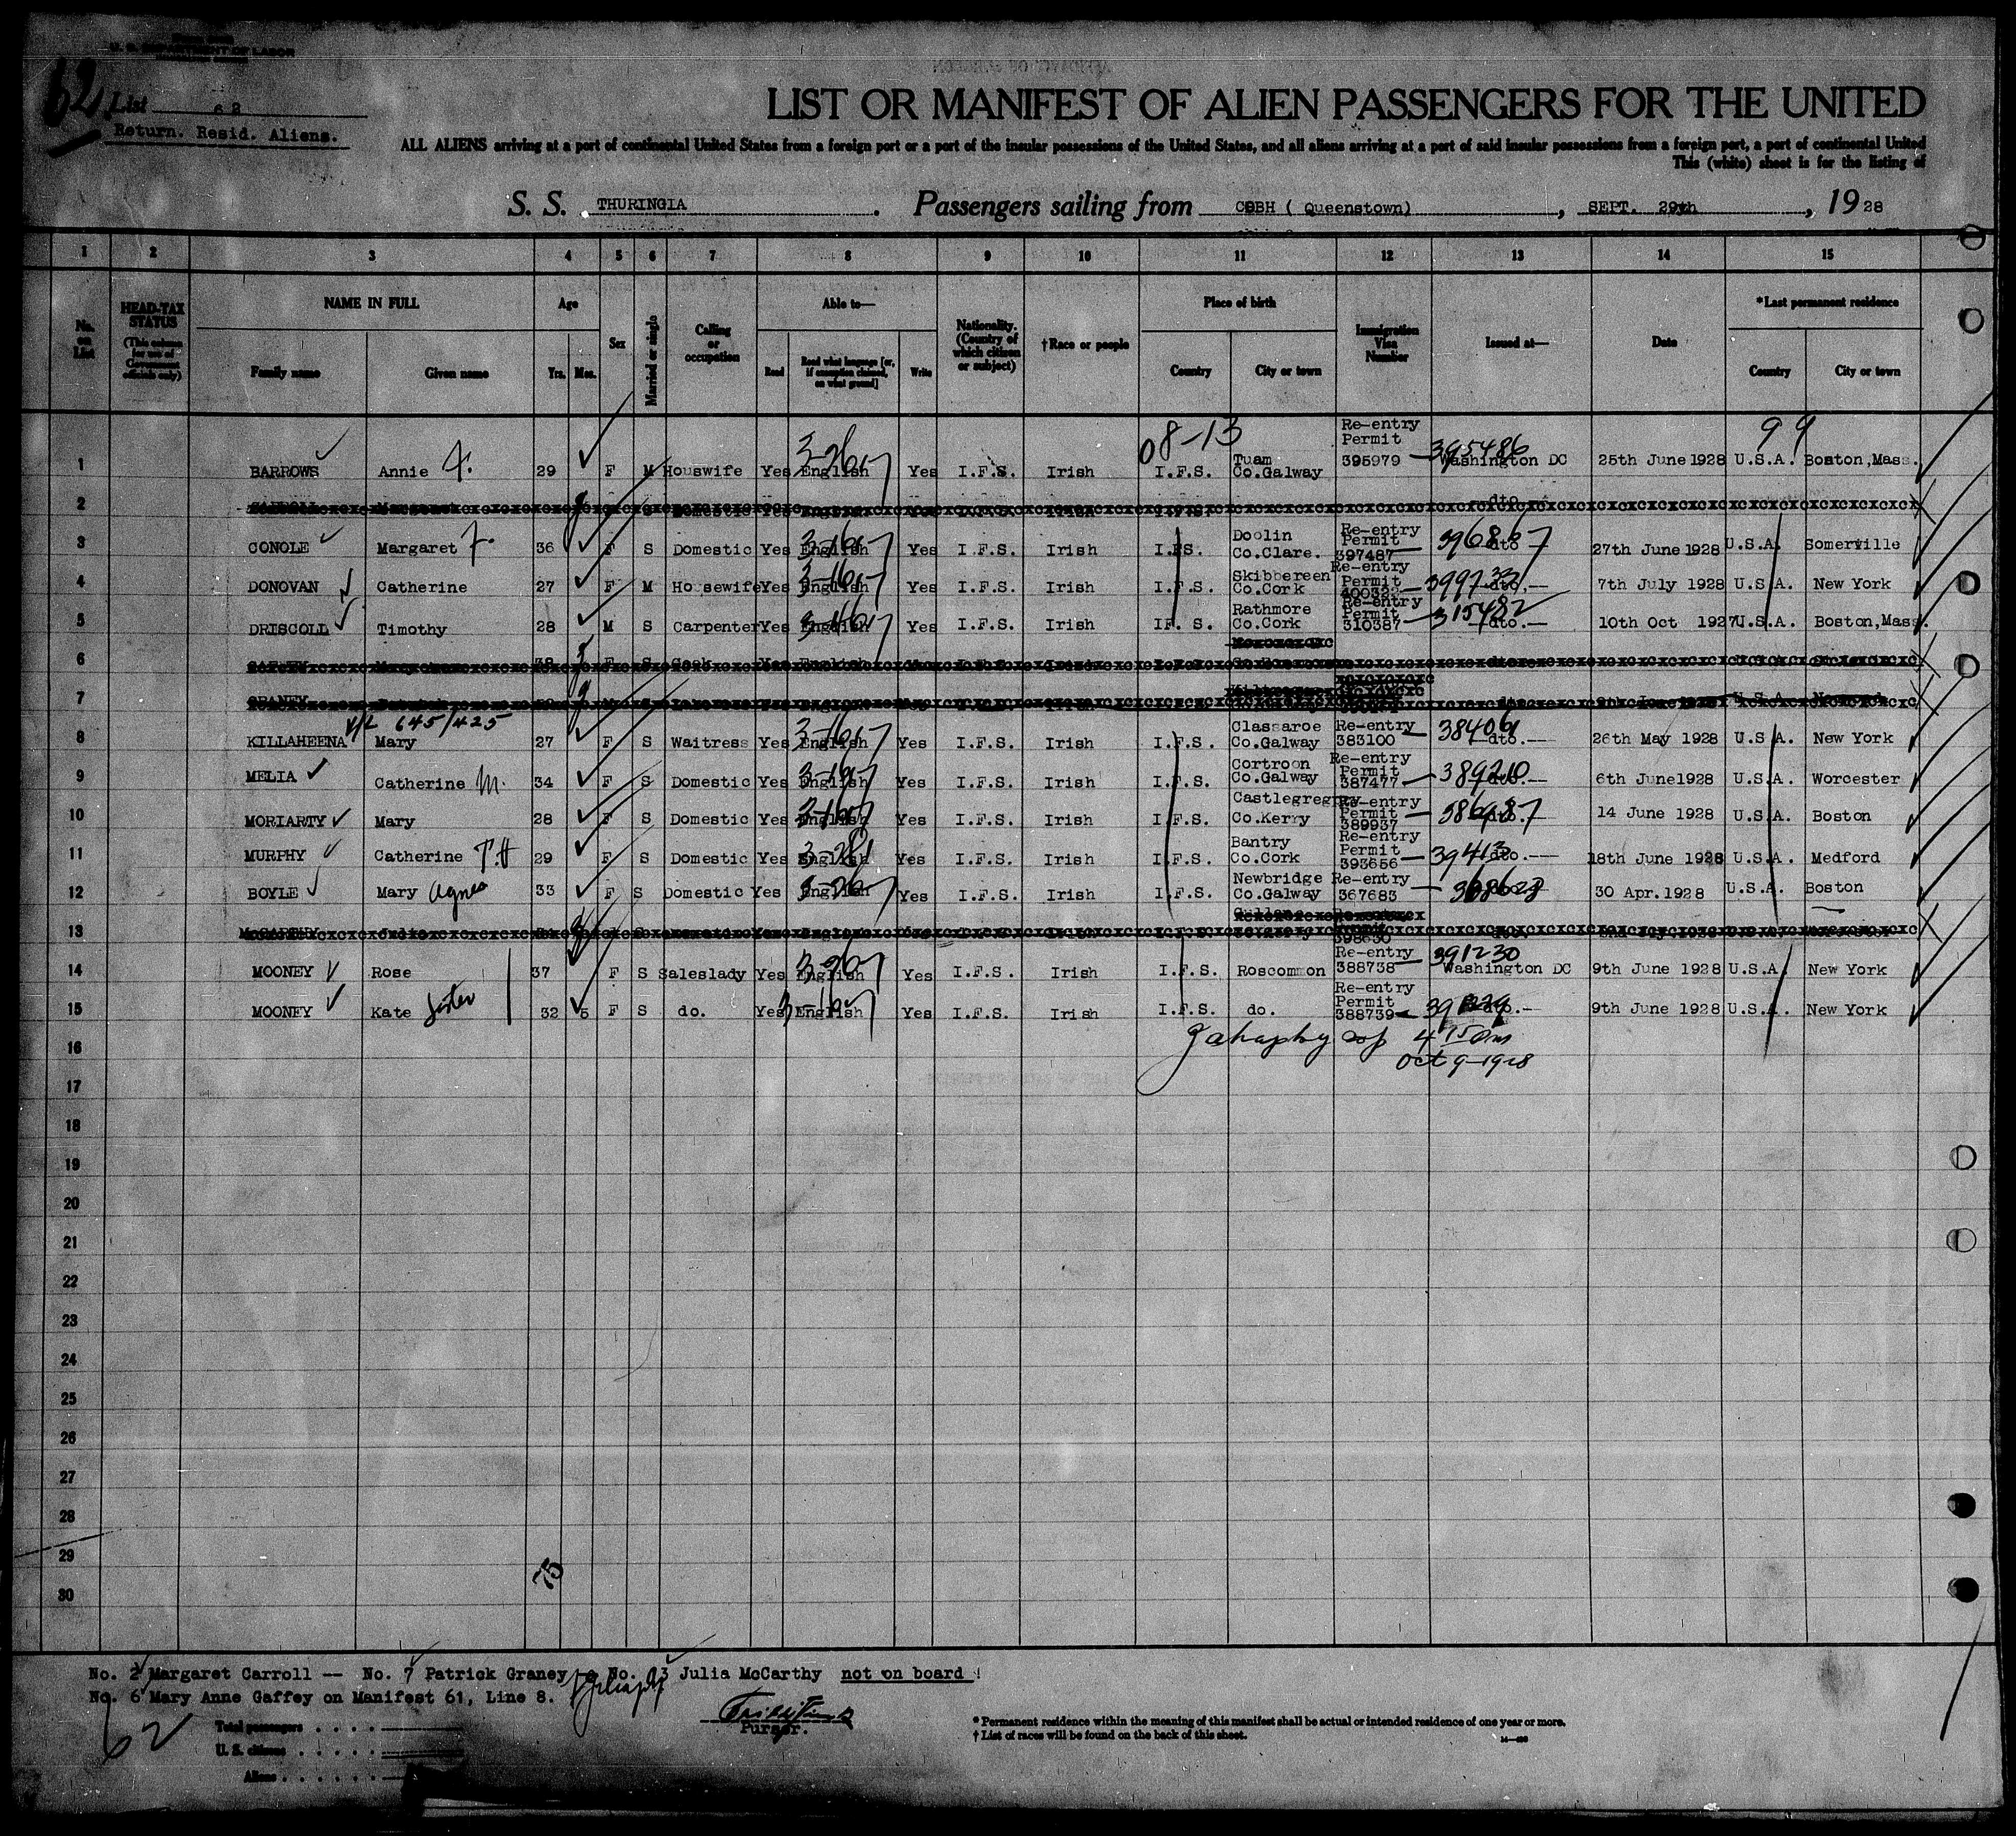 U. S. DEPARTMENT OF LABOR
62 List 62
Return. Resid. Aliens.
LIST OR MANIFEST OF ALIEN PASSENGERS FOR THE UNITED
ALL ALIENS arriving at a port of continental United States from a foreign port or a part of the insular possessions of the United States, and all aliens arriving at a port of said insular possessions from a foreign port, a part of continental United
This (white) sheet is for the listing of
S. S. THURINGIA. Passengers sailing from COBH ( Queenstown), SEPT. 29th, 1928
1 2 3 4 5 6 7 8 9 10 11 12 13 14 15
No. on List
HEAD-TAX STATUS (This column for use of Government officials only)
NAME IN FULL Family name Given name
Age Yrs. Mos.
Sex
Married or single
Calling or occupation
Able to— Read Read what language [or, if exemption claimed, on what ground] Write
Nationality. (Country of which citizen or subject)
†Race or people
Place of birth Country City or town
Immigration Visa Number
Issued at—
Date
*Last permanent residence Country City or town
08-13 99
1 BARROWS Annie F. 29 F M Houswife Yes English Yes I.F.S. Irish I.F.S. Tuam Co.Galway Re-entry Permit 395979 395486 Washington DC 25th June 1928 U.S.A. Boston,Mass.
2 dto
3 CONOLE Margaret F. 36 F S Domestic Yes English Yes I.F.S. Irish I.FS. Doolin Co.Clare. Re-entry Permit 397487 dto 27th June 1928 U.S.A. Somerville
4 DONOVAN Catherine 27 F M HousewifeYes English Yes I.F.S. Irish I.F.S. Skibbereen Co.Cork Re-entry Permit dto.— 7th July 1928 U.S.A. New York
5 DRISCOLL Timothy 28 M S CarpenterYes English Yes I.F.S. Irish IF. S. Rathmore Co.Cork Re-entry Permit 310387 315482 dto.— 10th Oct 1927 U.S.A. Boston,Mass.
6
7
V/L 645/425
8 KILLAHEENA Mary 27 F S Waitress Yes English Yes I.F.S. Irish I.F.S. Classaroe Co.Galway Re-entry 383100 dto.— 26th May 1928 U.S.A. New York
9 MELIA Catherine M. 34 F S Domestic Yes English Yes I.F.S. Irish I.F.S. Cortroon Co.Galway Re-entry Permit 387477 389210 6th June1928 U.S.A. Worcester
10 MORIARTY Mary 28 F S Domestic Yes English Yes I.F.S. Irish I.F.S. Castlegregory Co.Kerry Re-entry Permit 389937 14 June 1928 U.S.A. Boston
11 MURPHY Catherine T.H 29 F S Domestic Yes English Yes I.F.S. Irish I.F.S. Bantry Co.Cork Re-entry Permit 393656 dto.— 18th June 1928 U.S.A. Medford
12 BOYLE Mary Agnes 33 F S Domestic Yes English Yes I.F.S. Irish I.F.S. Newbridge Co.Galway Re-entry 367683 30 Apr.1928 U.S.A. Boston
13 398630
14 MOONEY Rose 37 F S Saleslady Yes English Yes I.F.S. Irish I.F.S. Roscommon Re-entry 388738 391230 Washington DC 9th June 1928 U.S.A. New York
15 MOONEY Kate Sister 32 5 F S do. Yes English Yes I.F.S. Irish I.F.S. do. Re-entry Permit 388739 dto.— 9th June 1928 U.S.A. New York
16
Oct 9-1928
17
18
19
20
21
22
23
24
25
26
27
28
29
30
75
No. 2 Margaret Carroll — No. 7 Patrick Graney No. 13 Julia McCarthy not on board
No. 6 Mary Anne Gaffey on Manifest 61, Line 8.
62
Purser.
Total passengers . . . .
U. S. citizens . . . . .
Aliens . . . . . .
* Permanent residence within the meaning of this manifest shall be actual or intended residence of one year or more.
† List of races will be found on the back of this sheet.